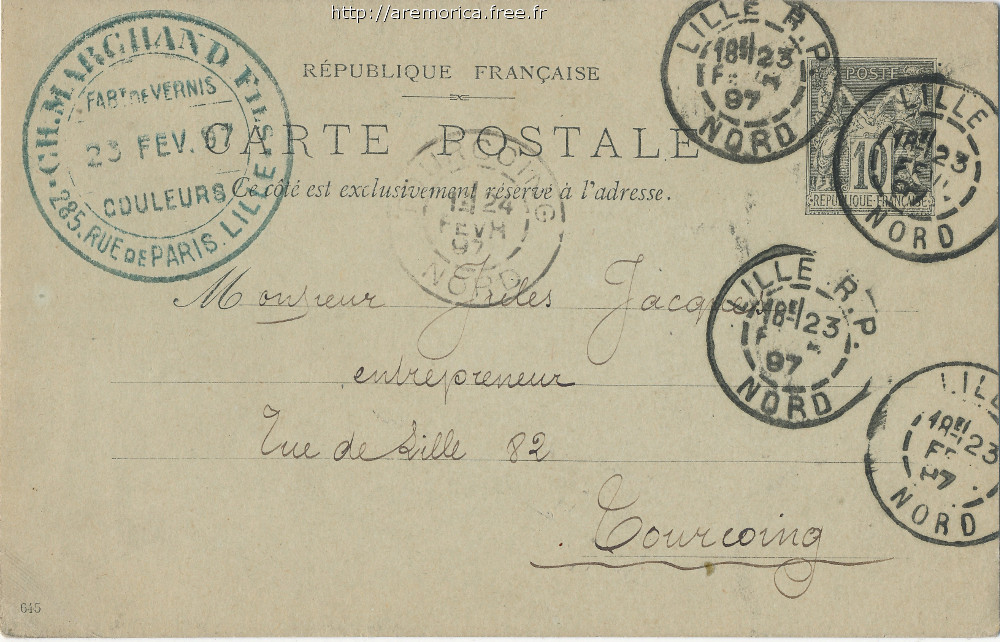 http://aremorica.free.fr
CH. MARCHAND FILS
FABT DE VERNIS
23 FEV. 97
COULEURS
285. RUE DE PARIS. LILLE
RÉPUBLIQUE FRANÇAISE
CARTE POSTALE
Ce côté est exclusivement réservé à l'adresse.
LILLE R.P.
18E/23
97
NORD
POSTE
10
RÉPUBLIQUE FRANÇAISE
LILLE
23
NORD
TOURCOING
24
FEVR
97
NORD
Monsieur Jules Jacques
entrepreneur
Rue de Lille 82
Tourcoing
LILLE R.P.
18E/23
97
NORD
LILLE
18E/23
97
NORD
645